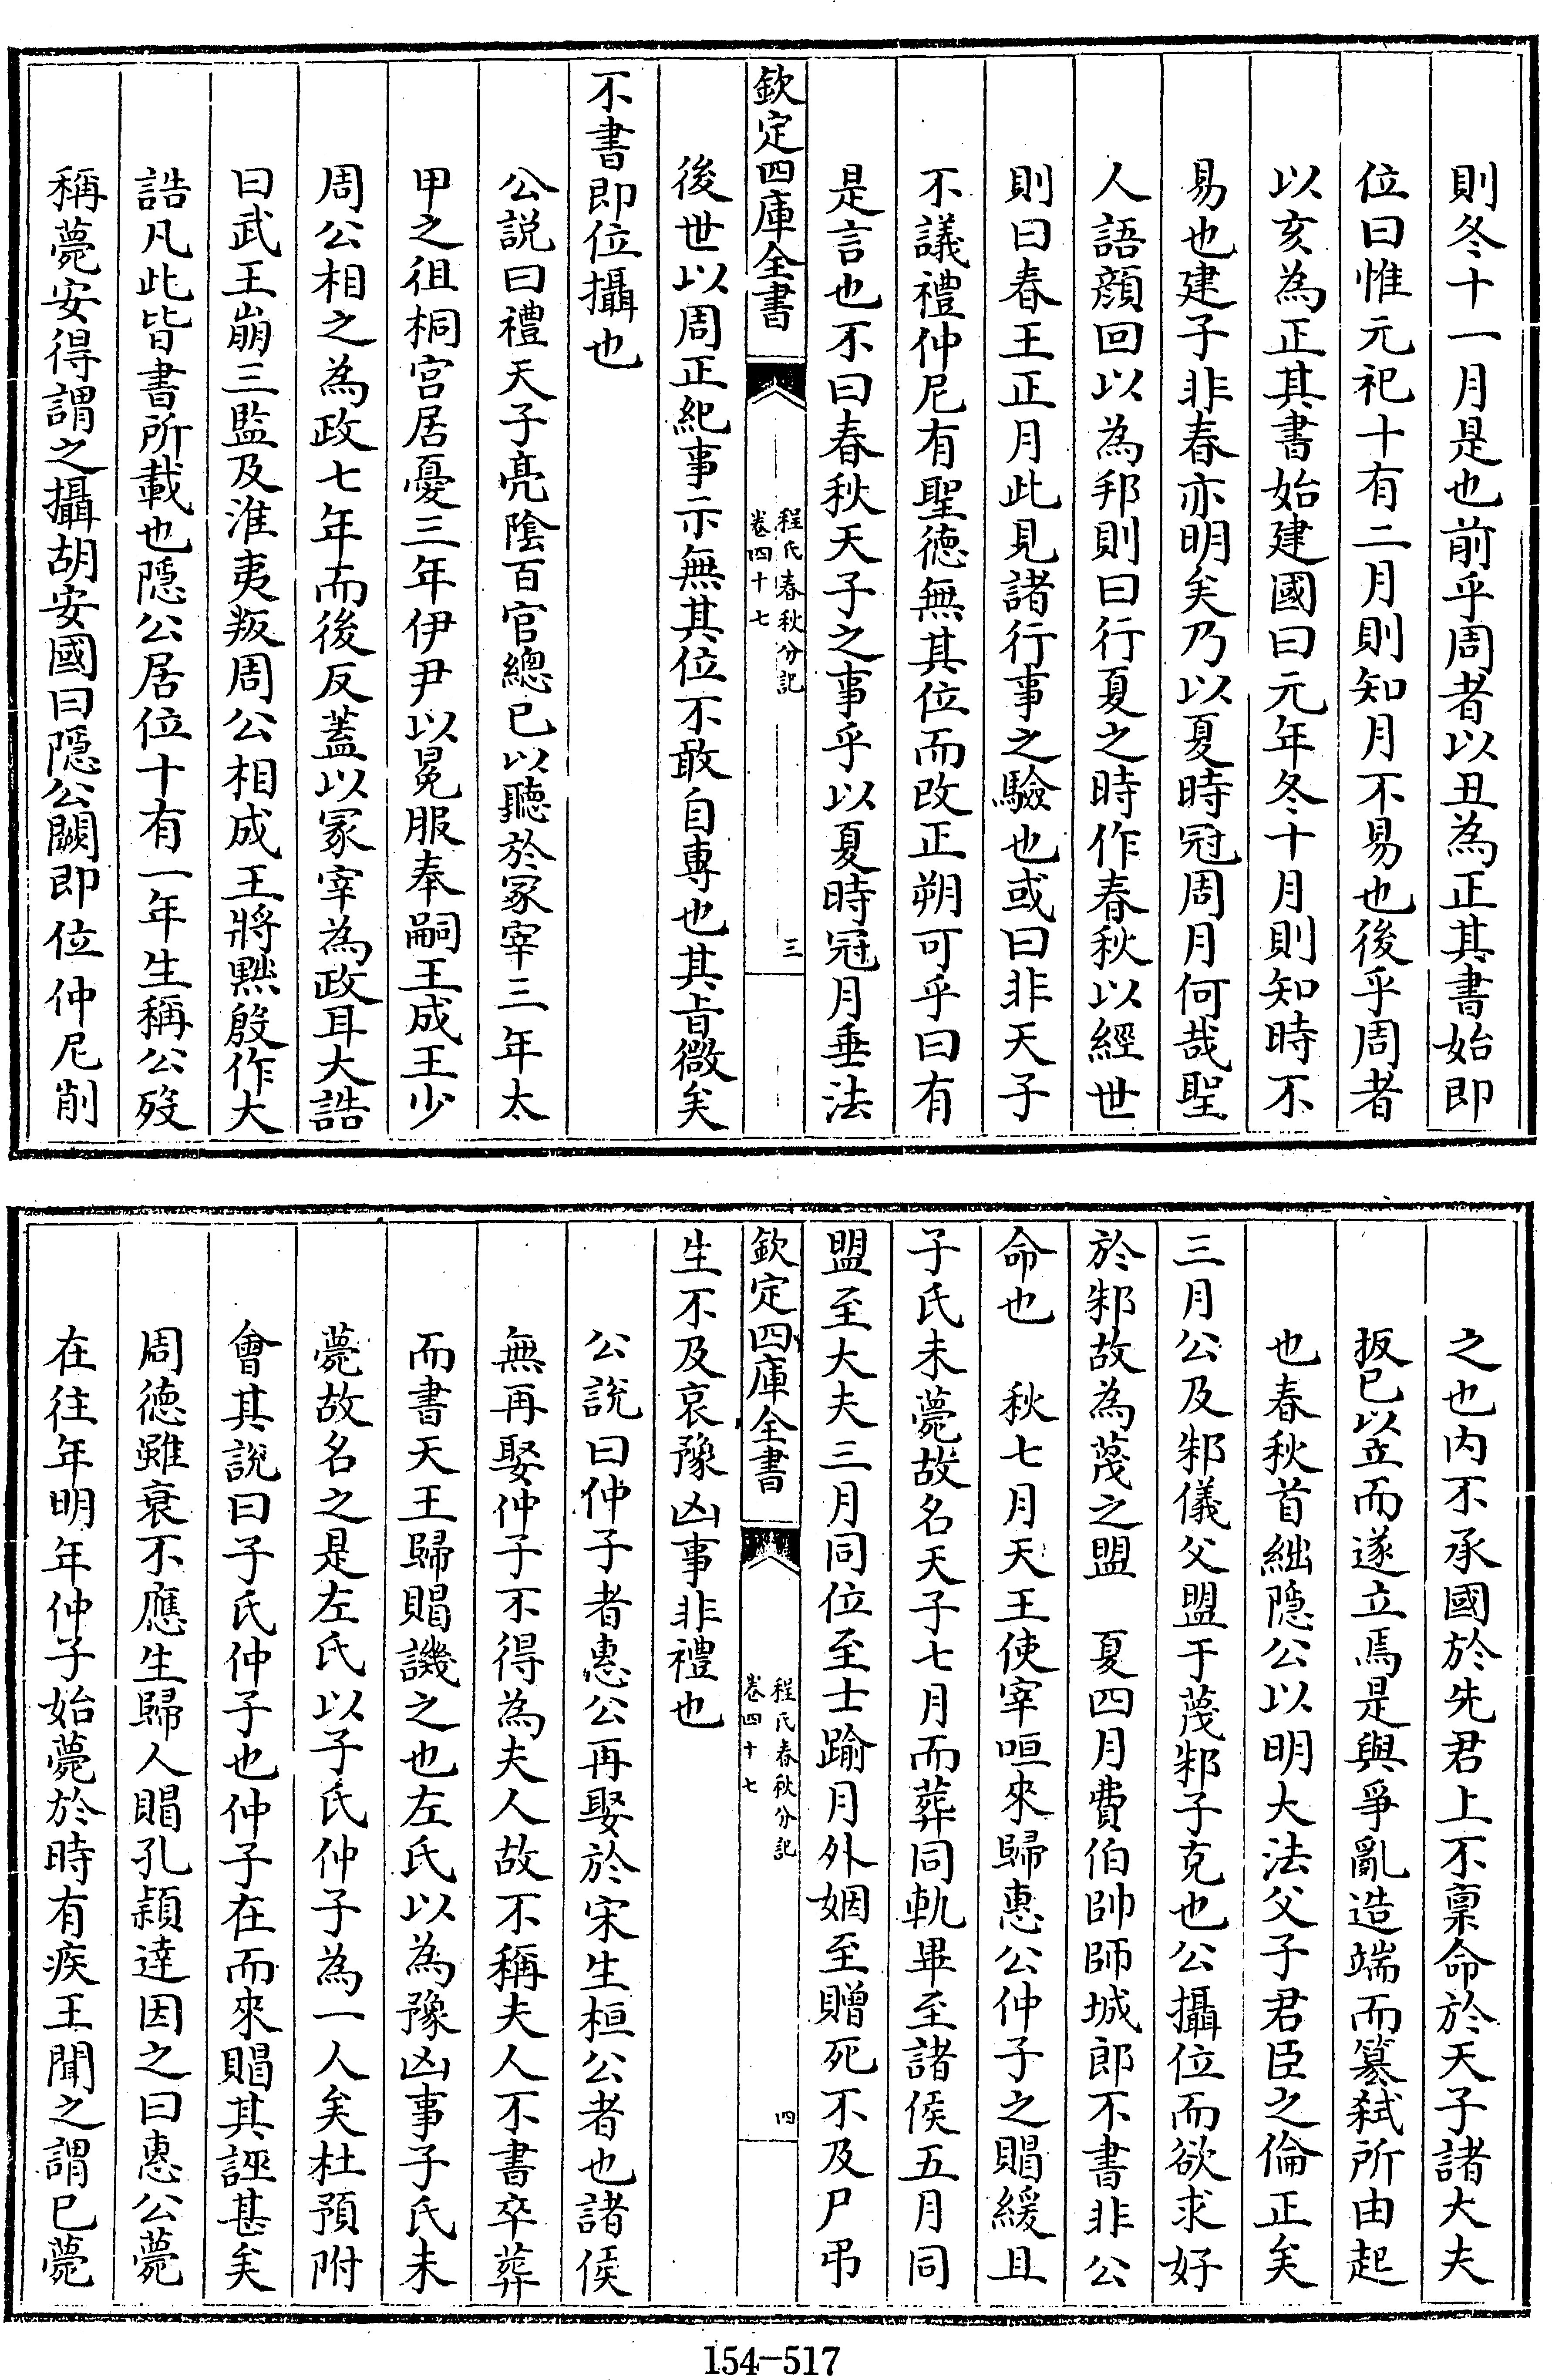 則冬十一月是也前乎周者以丑為正其書始即
位曰惟元祀十有二月則知月不易也後乎周者
以亥為正其書始建國曰元年冬十月則知時不
易也建子非春亦明矣乃以夏時冠周月何哉聖
人語顔回以為邦則曰行夏之時作春秋以經世
則曰春王正月此見諸行事之驗也或曰非天子
不議禮仲尼有聖徳無其位而改正朔可乎曰有
是言也不曰春秋天子之事乎以夏時冠月垂法
欽定四庫全書
程氏春秋分記
卷四十七
三
後世以周正紀事示無其位不敢自專也其㫖微矣
不書即位攝也
公説曰禮天子亮陰百官總已以聽於冢宰三年太
甲之徂桐宫居憂三年伊尹以冕服奉嗣王成王少
周公相之為政七年而後反蓋以冢宰為政耳大誥
曰武王崩三監及淮夷叛周公相成王將黜殷作大
誥凡此皆書所載也隱公居位十有一年生稱公歿
稱薨安得謂之攝胡安國曰隱公闕即位仲尼削
之也内不承國於先君上不禀命於天子諸大夫
扳已以立而遂立焉是與爭亂造端而簒弑所由起
也春秋首絀隱公以明大法父子君臣之倫正矣
三月公及邾儀父盟于蔑邾子克也公攝位而欲求好
於邾故為蔑之盟　夏四月費伯帥師城郎不書非公
命也　秋七月天王使宰咺來歸惠公仲子之賵緩且
子氏未薨故名天子七月而葬同軌畢至諸侯五月同
盟至大夫三月同位至士踰月外姻至贈死不及尸弔
欽定四庫全書
程氏春秋分記
卷四十七
四
生不及哀豫凶事非禮也
公説曰仲子者惠公再娶於宋生桓公者也諸侯
無再娶仲子不得為夫人故不稱夫人不書卒葬
而書天王歸賵譏之也左氏以為豫凶事子氏未
薨故名之是左氏以子氏仲子為一人矣杜預附
會其説曰子氏仲子也仲子在而來賵其誣甚矣
周徳雖衰不應生歸人賵孔穎達因之曰惠公薨
在往年明年仲子始薨於時有疾王聞之謂已薨
154-517